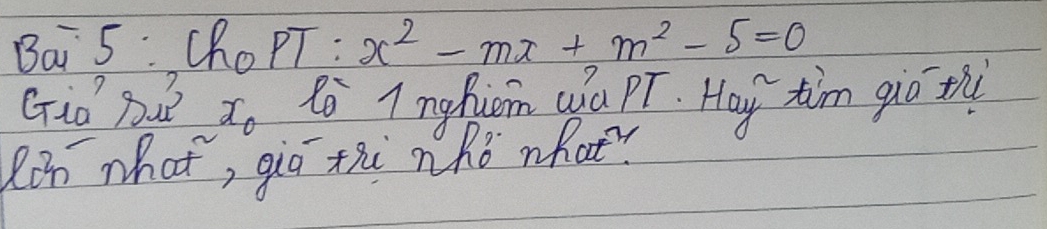 Bài 5 : Cho PT : x² - mx + m² - 5 = 0
Giả sử x₀ là 1 nghiệm của PT. Hãy tìm giá trị
lớn nhất, giá trị nhỏ nhất.